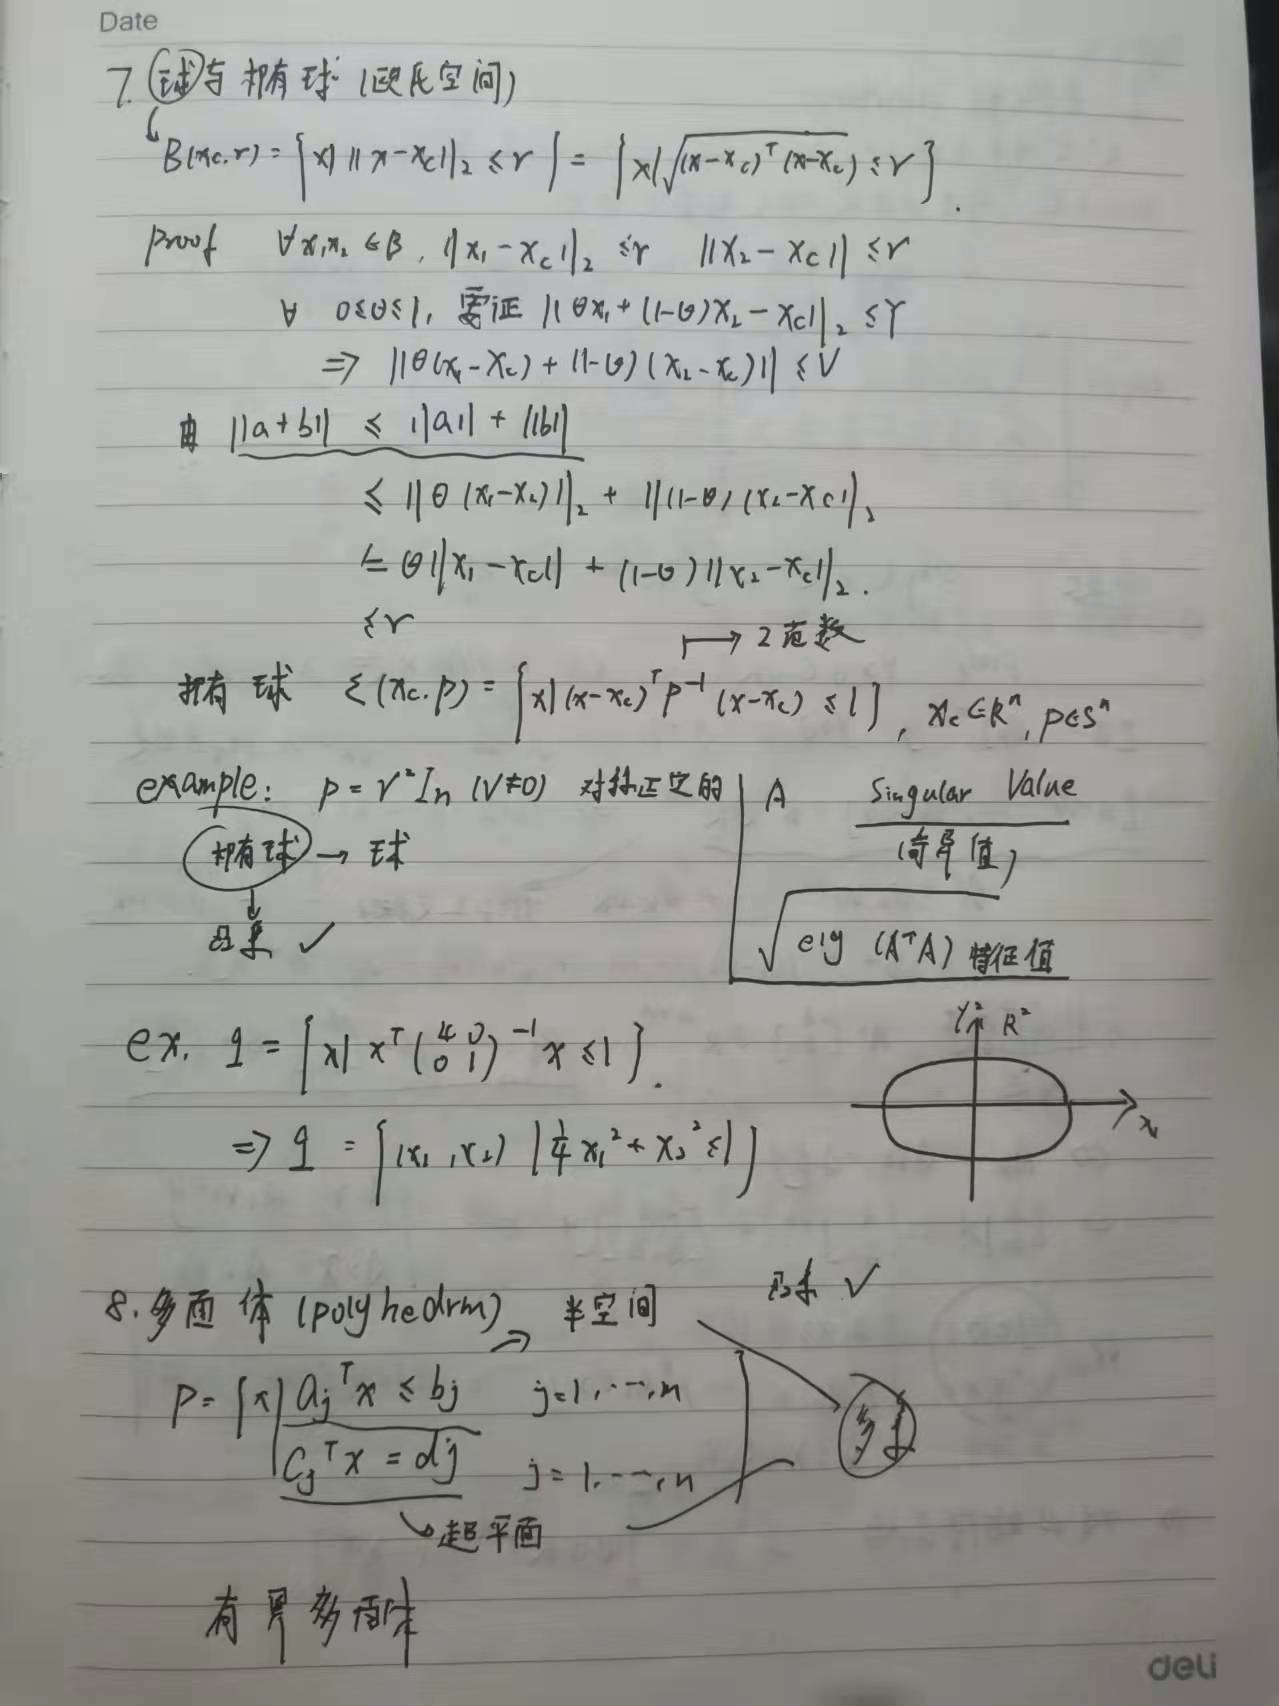 Date
7. 球与椭球 (欧氏空间)
B(xc,r) = {x| ||x-xc||₂ ≤ r} = {x|√((x-xc)ᵀ(x-xc)) ≤ r}.
proof ∀x₁x₂∈B, ||x₁-xc||₂ ≤r ||x₂-xc|| ≤r
∀ 0≤θ≤1, 要证 ||θx₁+(1-θ)x₂-xc||₂ ≤r
⇒ ||θ(x₁-xc)+(1-θ)(x₂-xc)|| ≤r
由 ||a+b|| ≤ ||a|| + ||b||
≤ ||θ(x₁-x₂)||₂ + ||(1-θ)(x₂-xc)||₂
= θ||x₁-xc|| + (1-θ)||x₂-xc||₂.
≤r
→ 2范数
球 ξ(xc,p) = {x|(x-xc)ᵀp⁻¹(x-xc) ≤1}, xc∈Rⁿ, p∈Sⁿ
example: p=r²In (r≠0) 对称正定的
球 → 球
凸集 ✓
A Singular Value
(奇异值)
√eig (AᵀA) 特征值
ex. q = {x| xᵀ(4 0
0 1)⁻¹x ≤1}.
y² R²
x₁
⇒ q = {(x₁,x₂) | ¼x₁²+x₂² ≤1}
凸集 ✓
8. 多面体 (polyhedrm) → 半空间
P={x| ajᵀx ≤ bj j=1,…,m
cjᵀx = dj j=1,…,n
超平面
有界多面体
deli